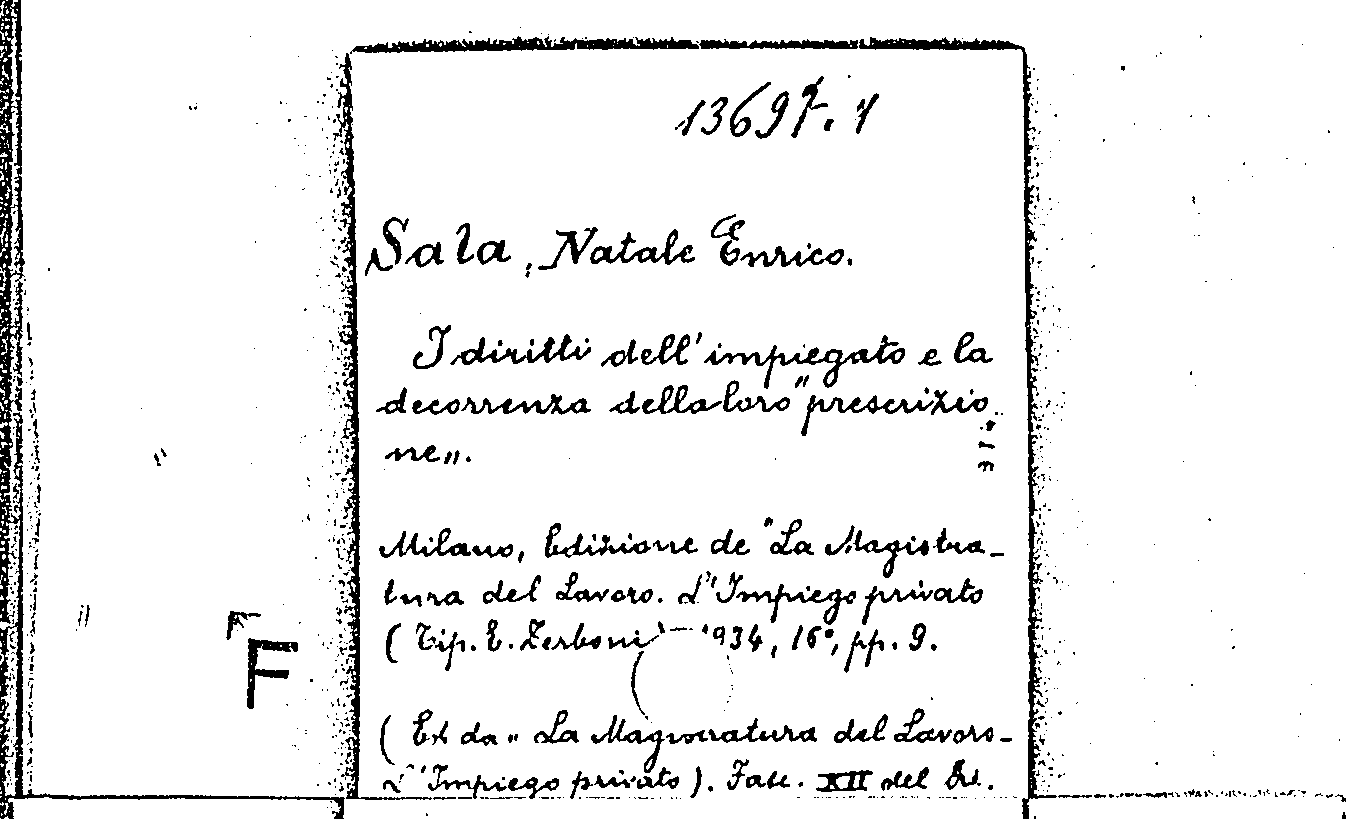 13697. 1
Sala, Natale Enrico.
I diritti dell'impiegato e la
decorrenza della loro "prescrizio
ne„.
Milano, Edizione de "La Magistra-
tura del Lavoro. L'Impiego privato
( Tip. E. Zerboni) 1934, 16°, pp. 9.
( Est da „ La Magistratura del Lavoro-
L'Impiego privato ). Fasc. XII del
F